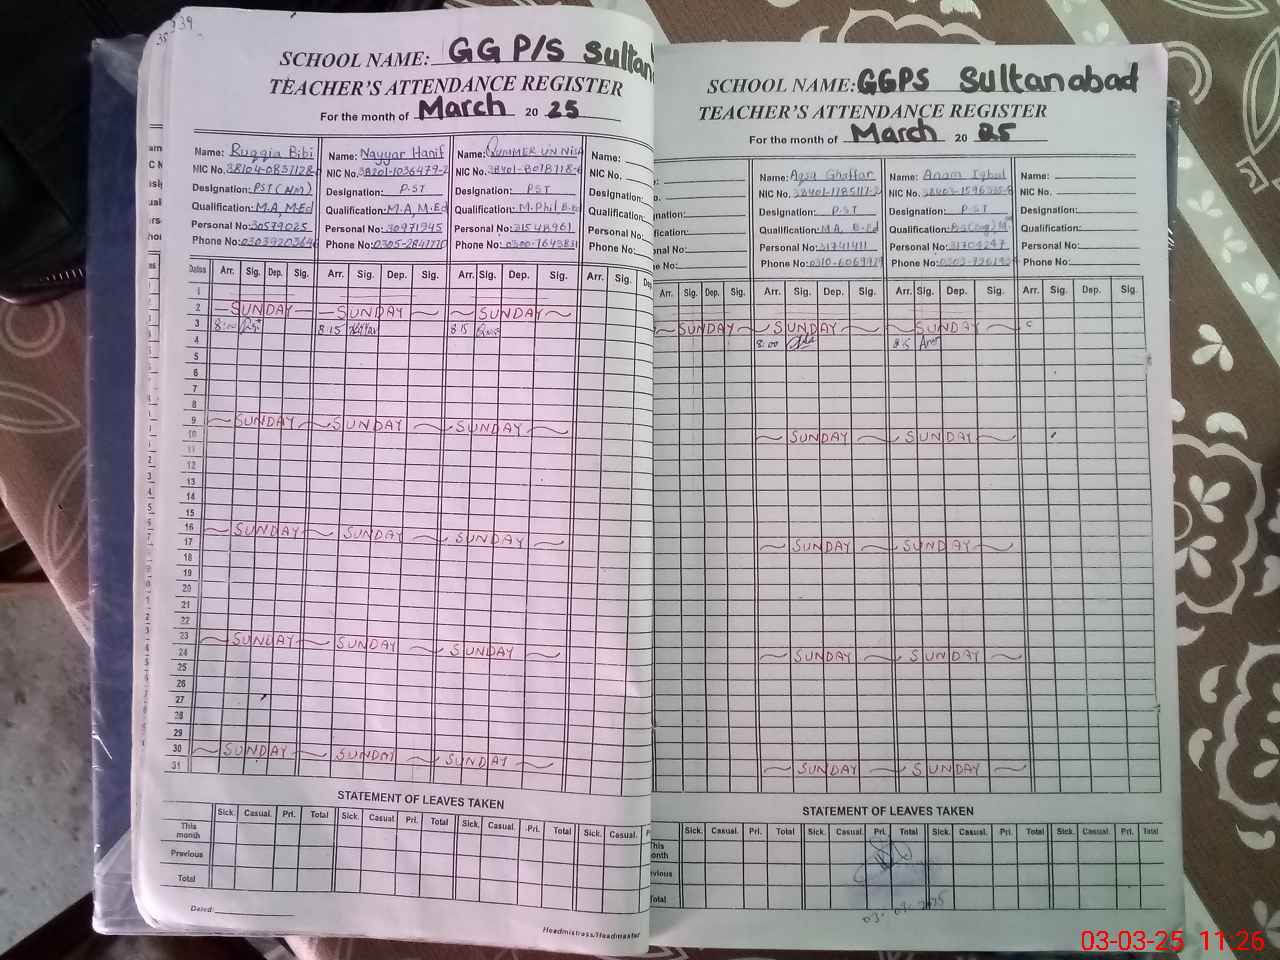 39
SCHOOL NAME: GG P/S Sultan
TEACHER'S ATTENDANCE REGISTER
For the month of March 20 25
Name: Ruqqia Bibi Name: Nayyar Hanif Name: QUMMER UN NISA Name:
NIC No. NIC No. 38201-1036479-2 NIC No. NIC No.
Designation: PST (HM) Designation: P.ST Designation: PST Designation:
Qualification: M.A, M.Ed Qualification: M.A, M.Ed Qualification: M.Phil B.Ed Qualification:
Personal No: 30579025 Personal No: 30971945 Personal No: 31548961 Personal No:
Phone No: Phone No: Phone No: Phone No:
Dates Arr. Sig. Dep. Sig. Arr. Sig. Dep. Sig. Arr. Sig. Dep. Sig. Arr. Sig. De
1
2 SUNDAY SUNDAY SUNDAY
3 8:00 8:15 8:15
4
5
6
7
8
9 SUNDAY SUNDAY SUNDAY
10
11
12
13
14
15
16 SUNDAY SUNDAY SUNDAY
17
18
19
20
21
22
23 SUNDAY SUNDAY SUNDAY
24
25
26
27
28
29
30 SUNDAY SUNDAY SUNDAY
31
STATEMENT OF LEAVES TAKEN
Sick. Casual. Pri. Total Sick. Casual. Pri. Total Sick. Casual. Pri. Total Sick. Casual.
This month
Previous
Total
Dated:
Headmistress/Headmaster
SCHOOL NAME: GGPS Sultanabad
TEACHER'S ATTENDANCE REGISTER
For the month of March 20 25
Name: Aqsa Ghaffar Name: Anam Iqbal Name:
NIC No. 38401-1185117-2 NIC No. NIC No.
Designation: P.ST Designation: P.ST Designation:
Qualification: M.A, B.Ed Qualification: Qualification:
Personal No: 31741411 Personal No: 31704247 Personal No:
Phone No: Phone No: Phone No:
Arr. Sig. Dep. Sig. Arr. Sig. Dep. Sig. Arr. Sig. Dep. Sig. Arr. Sig. Dep. Sig.
SUNDAY SUNDAY SUNDAY
8:00 8:15
SUNDAY SUNDAY
SUNDAY SUNDAY
SUNDAY SUNDAY
SUNDAY SUNDAY
STATEMENT OF LEAVES TAKEN
Sick. Casual. Pri. Total Sick. Casual. Pri. Total Sick. Casual. Pri. Total Sick. Casual. Pri. Total
This month
vious
Total
03-03-25 11:26